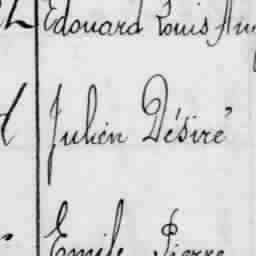 Edouard Louis
Julien Désiré
Emile Pierre